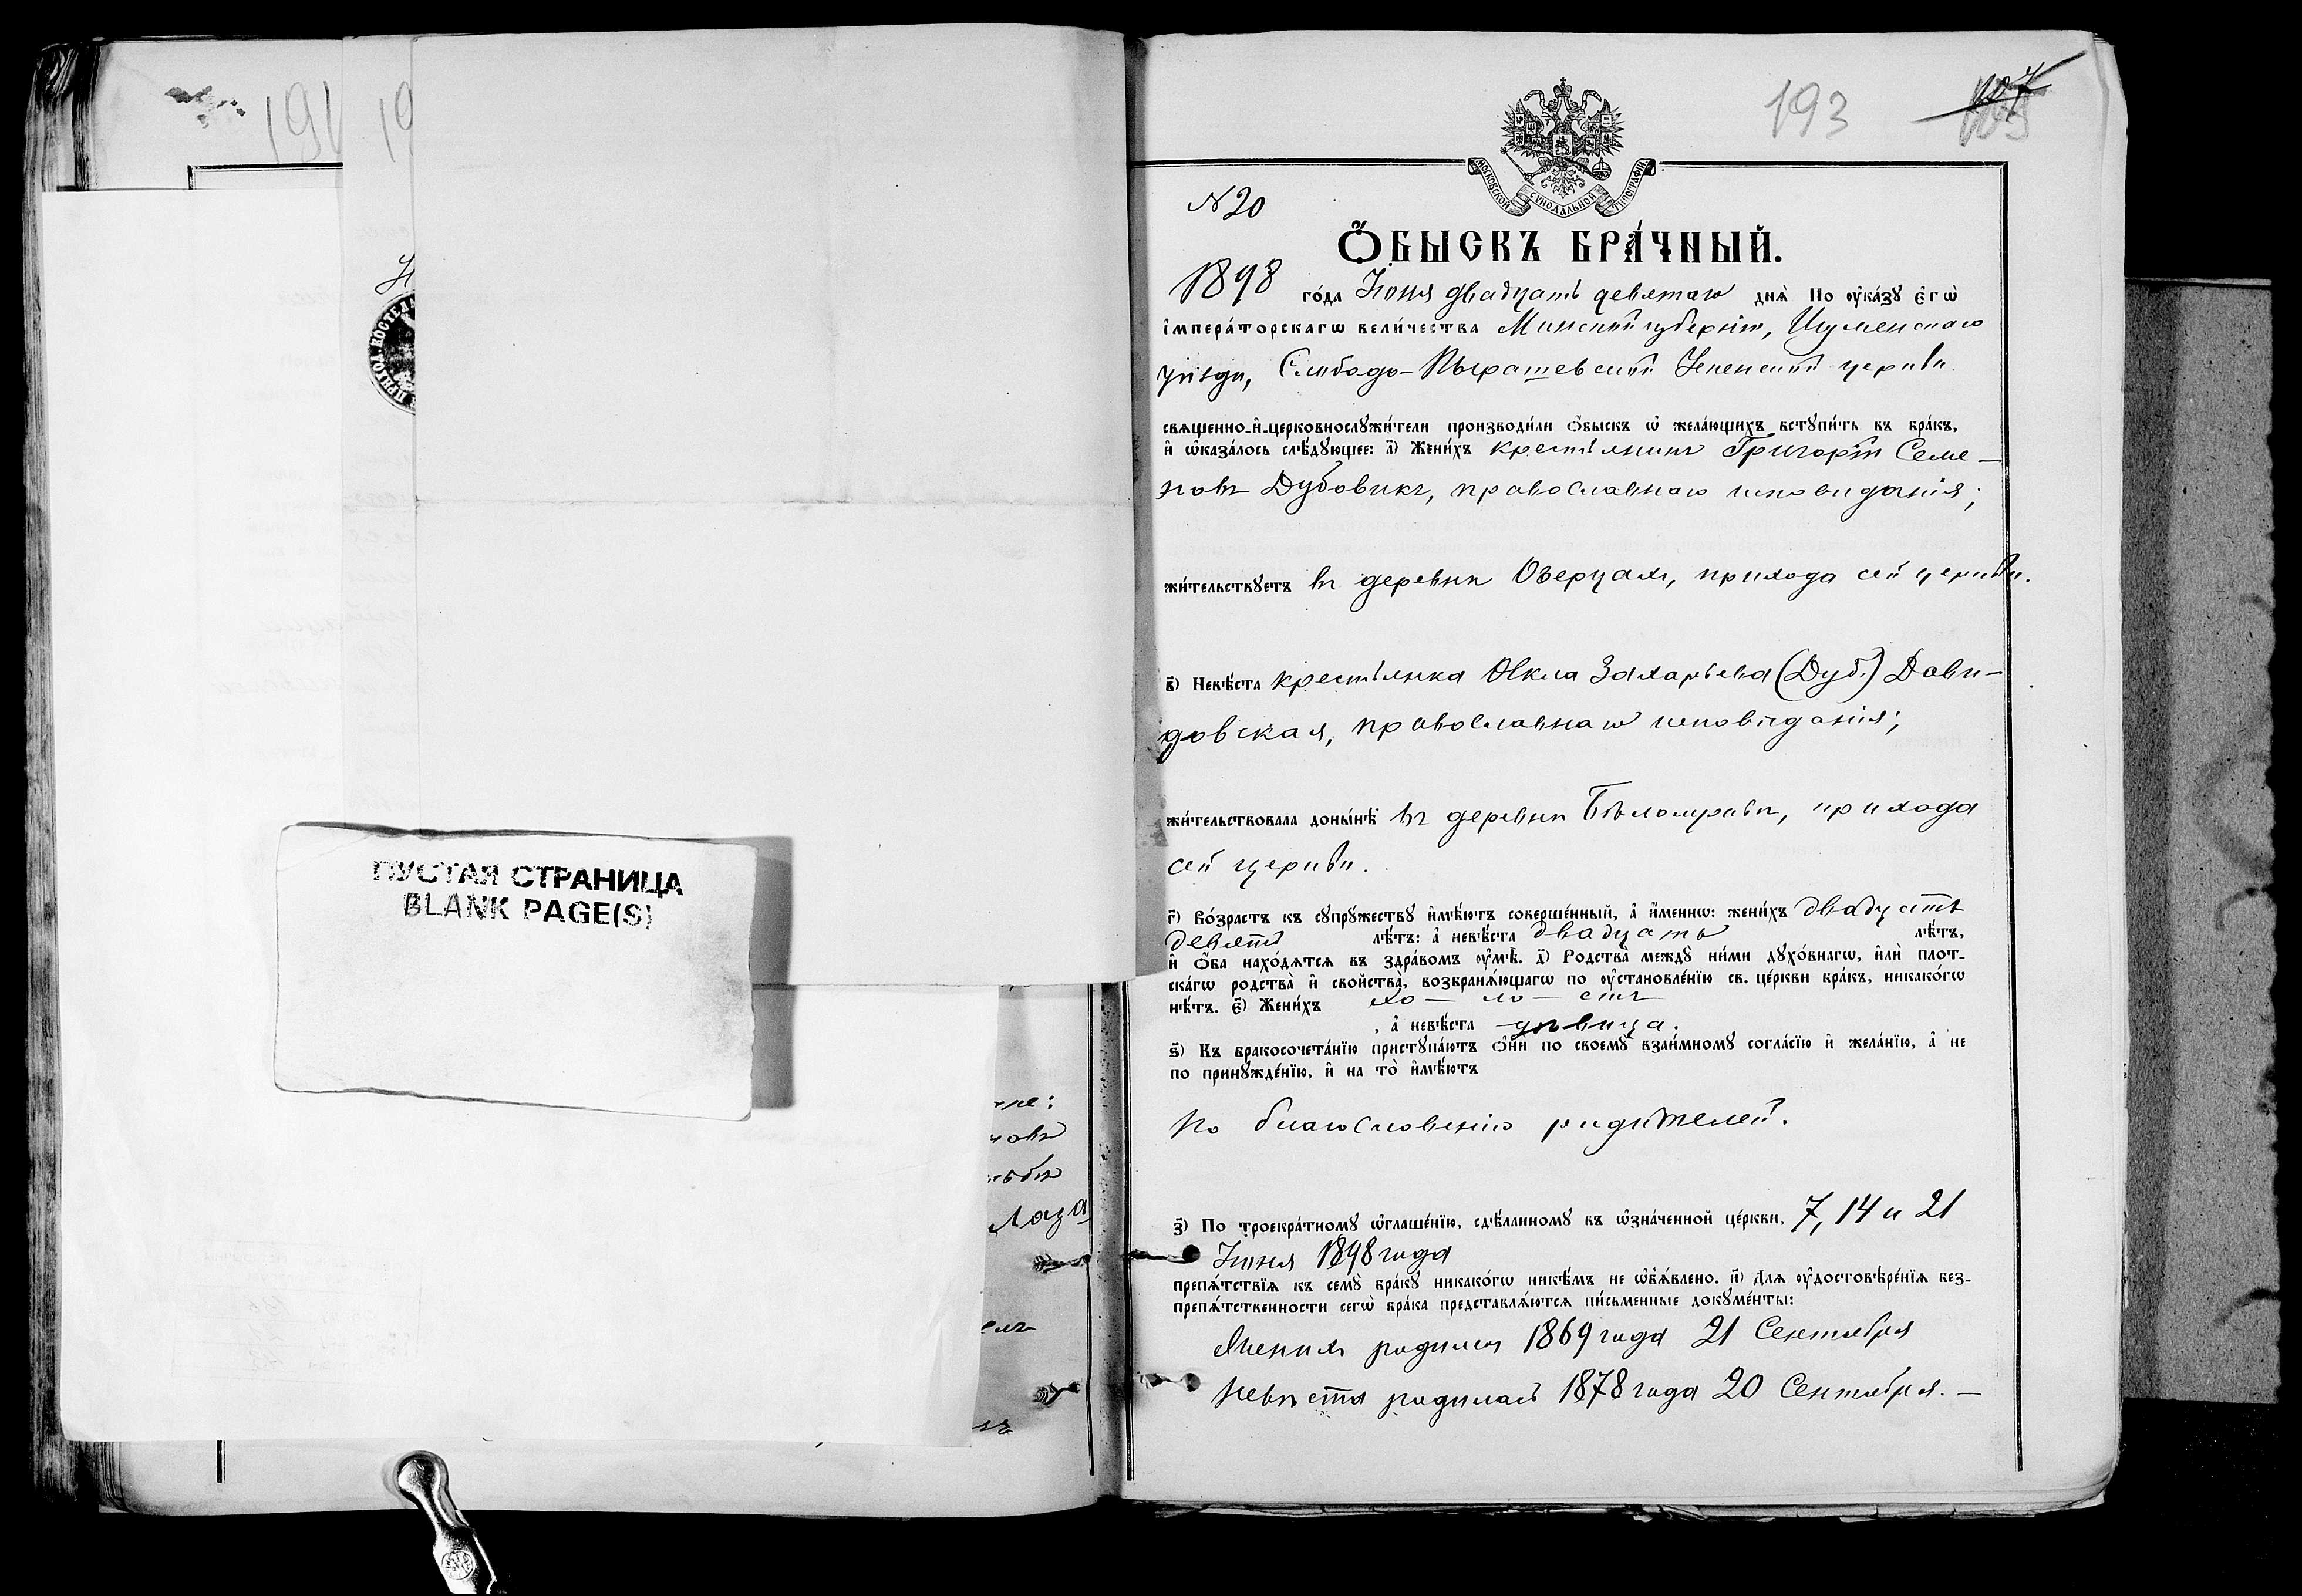 191
19
ПРИХОД. КОСТЕЛА
ПУСТАЯ СТРАНИЦА
BLANK PAGE(S)
новъ
Лаза
193
107
МОСКОВСКОЙ СѴНОДАЛЬНОЙ ТИПОГРАФІИ
N 20
Ѻ҆БЫСКЪ БРА́ЧНЫЙ.
1898 го́да Іюня двадцать девятаго днѧ̀ По ᲂу҆ка́зꙋ є҆гѡ̀
і҆мпера́торскагѡ вели́чества Минской губерніи, Игуменскаго
уѣзда, Слободо-Пырашевской Успенской церкви
свѧщенно-и҆-церковнослꙋжи́тели производи́ли ѻ҆́быскъ ѡ҆ жела́ющихъ вступи́ть въ бра́къ,
и҆ ѡ҆каза́лось слѣ́дꙋющее: а҃) Жени́хъ крестьянинъ Григорій Семе-
новъ Дубовикъ, православнаго исповѣданія;
жи́тельствꙋетъ въ деревнѣ Озерцахъ, прихода сей церкви.
в҃) Невѣ́ста крестьянка Ѳекла Захарьева (Дуб.) Дави-
довская, православнаго исповѣданія;
жи́тельствовала доны́нѣ въ деревнѣ Бѣломравѣ, прихода
сей церкви.
г҃) Во́зрастъ къ сꙋпрꙋжествꙋ и҆мѣ́ютъ соверше́нный, а҆ и҆́меннѡ: жени́хъ двадцать
девять лѣ́тъ: а҆ невѣ́ста двадцать лѣ́тъ,
и҆ ѻ҆́ба нахо́дѧтсѧ въ здра́вомъ ᲂу҆мѣ̀. д҃) Родства̀ междꙋ̀ ни́ми дꙋхо́внагѡ, и҆лѝ плот-
ска́гѡ родства̀ и҆ свойства̀, возбранѧ́ющагѡ по ᲂу҆становле́нїю св. це́ркви бра́къ, никако́гѡ
нѣ́тъ. є҃) Жени́хъ хо — ло — стъ
, а҆ невѣ́ста дѣвица.
ѕ҃) Къ бракосочета́нїю пристꙋпа́ютъ ѻ҆нѝ по своемꙋ̀ взаи́мномꙋ согла́сїю и҆ жела́нїю, а҆ не
по принꙋжде́нїю, и҆ на то̀ и҆мѣ́ютъ
по благословенію родителей.
з҃) По троекра́тномꙋ ѡ҆глаше́нїю, сдѣ́ланномꙋ въ ѡ҆зна́ченной це́ркви, 7, 14 и 21
Іюня 1898 года
препѧ́тствїѧ къ семꙋ̀ бра́кꙋ никако́гѡ никѣ́мъ не ѡ҆б̾ѧ́влено. и҃) Длѧ ᲂу҆достовѣре́нїѧ без-
препѧ́тственности сегѡ̀ бра́ка представлѧ́ютсѧ пи́сьменные докꙋме́нты:
Женихъ родился 1869 года 21 Сентября
невѣста родилась 1878 года 20 Сентября. —